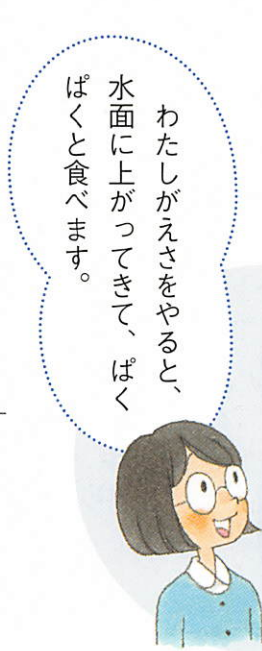 わたしがえさをやると、
水面に上がってきて、ぱく
ぱくと食べます。